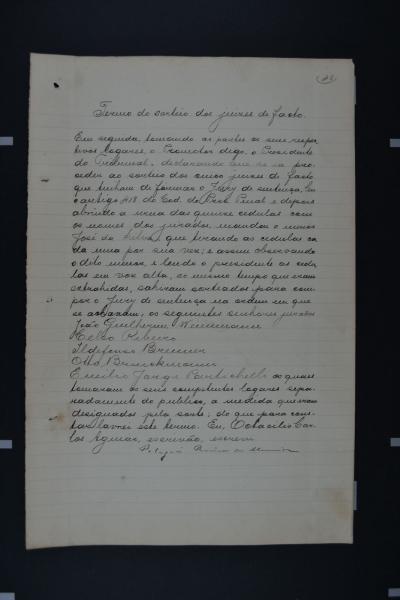 Termo do sorteio dos juizes de facto.
Em seguida, tomando as partes os seus respe-
ctivos logares, o Promotor digo, o Presidente
do Tribunal, declarando que se ia pro-
ceder ao sorteio dos cinco juizes de facto
que tinham de formar o Jury de sentença,
o artigo 418 do Cod. do Proc. Penal e depois
abrindo a urna das quinze cedulas com
os nomes dos jurados, mandou o menor
José da Silva, que tirando as cedulas ca-
da uma por sua vez; e assim observando
o dito menor, e lendo o presidente as cedu-
las em voz alta, ao mesmo tempo que eram
extrahidas, sahiram sorteados para com-
por o Jury de sentença na ordem em que
se acharam, os seguintes senhores jurados
João Guilherme
Celso Ribeiro
Ildefonso
Otto
Emilio Jorge os quaes
tomaram os seus competentes logares sepa-
radamente do publico, a medida que eram
designados pela sorte; do que para cons-
tar lavrei este termo. Eu, Octacilio Car-
los Aguiar, escrivão, escrevi